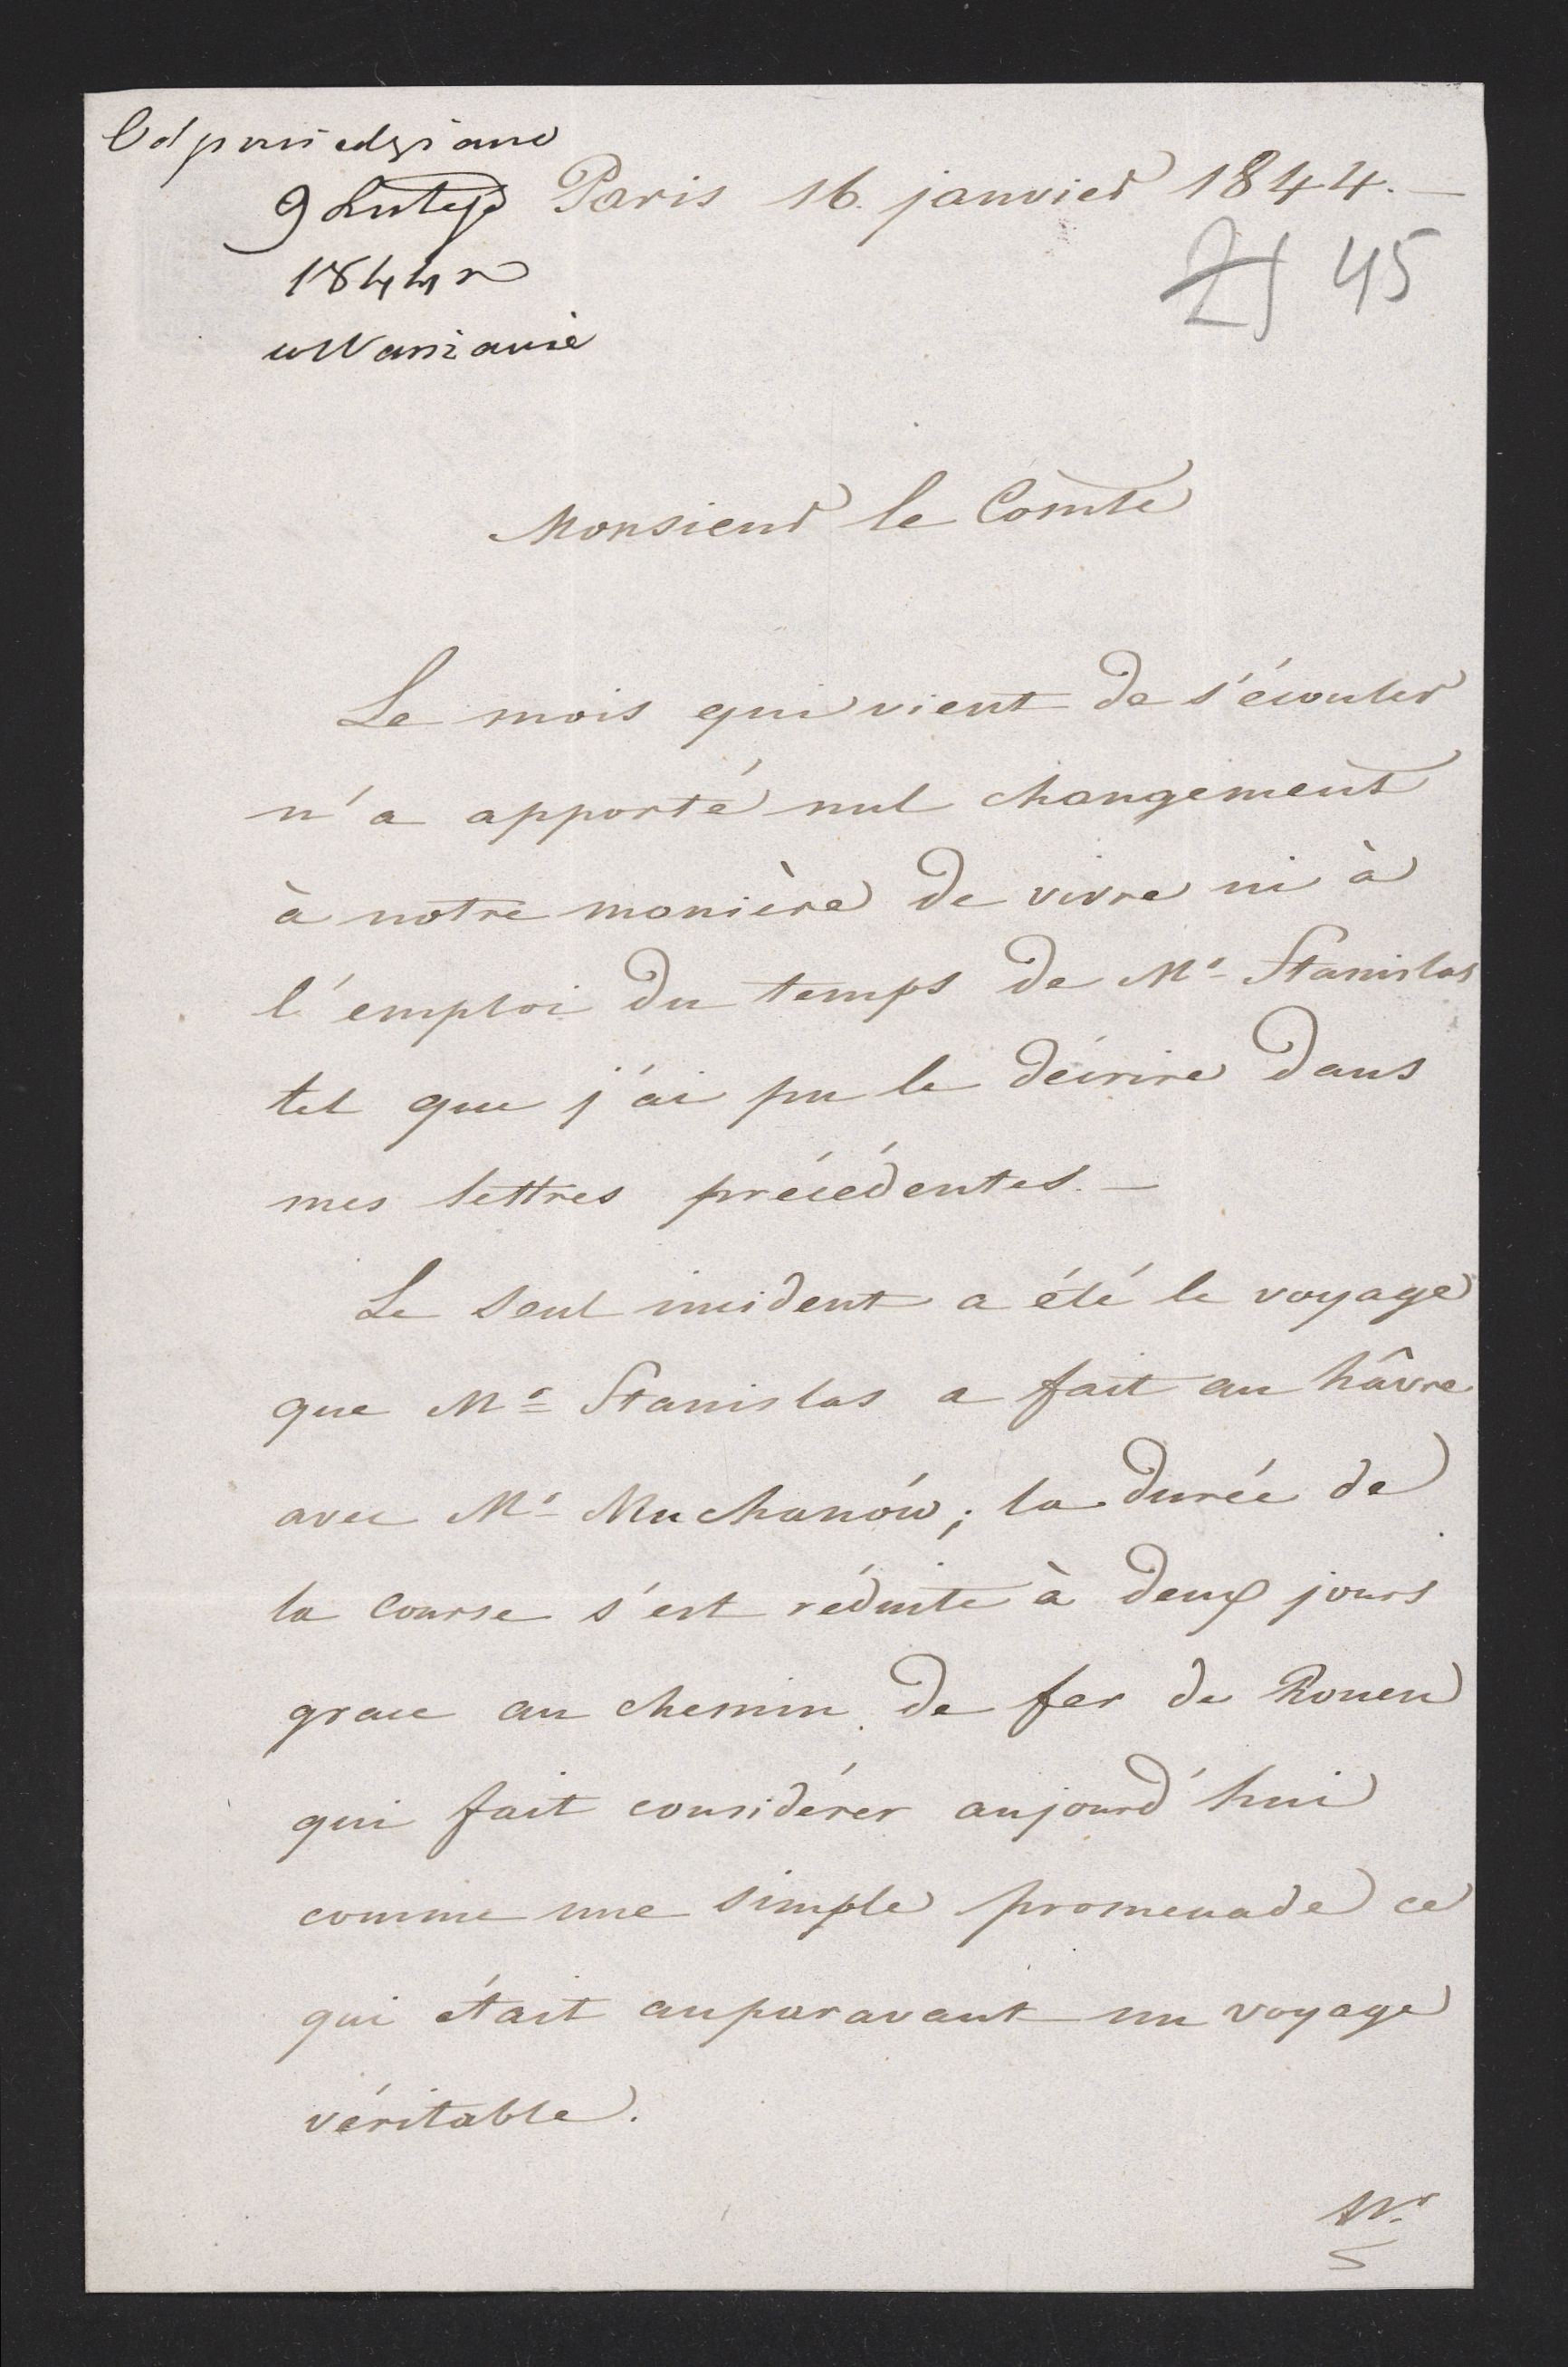 Odpowiedziano
9 Lutego
1844 r
w Warszawie
Paris 16. janvier 1844. —
45
Monsieur le Comte
Le mois qui vient de s'écouler
n'a apporté nul changement
à notre manière de vivre ni à
l'emploi du temps de Mr Stanislas
tel que j'ai pu le décrire dans
mes lettres précédentes. —
Le seul incident a été le voyage
que Mr Stanislas a fait au hâvre
avec Mr Muchanów; la durée de
la course s'est réduite à deux jours
grace au chemin de fer de Rouen
qui fait considérer aujourd'hui
comme une simple promenade ce
qui était auparavant un voyage
véritable.
Mr